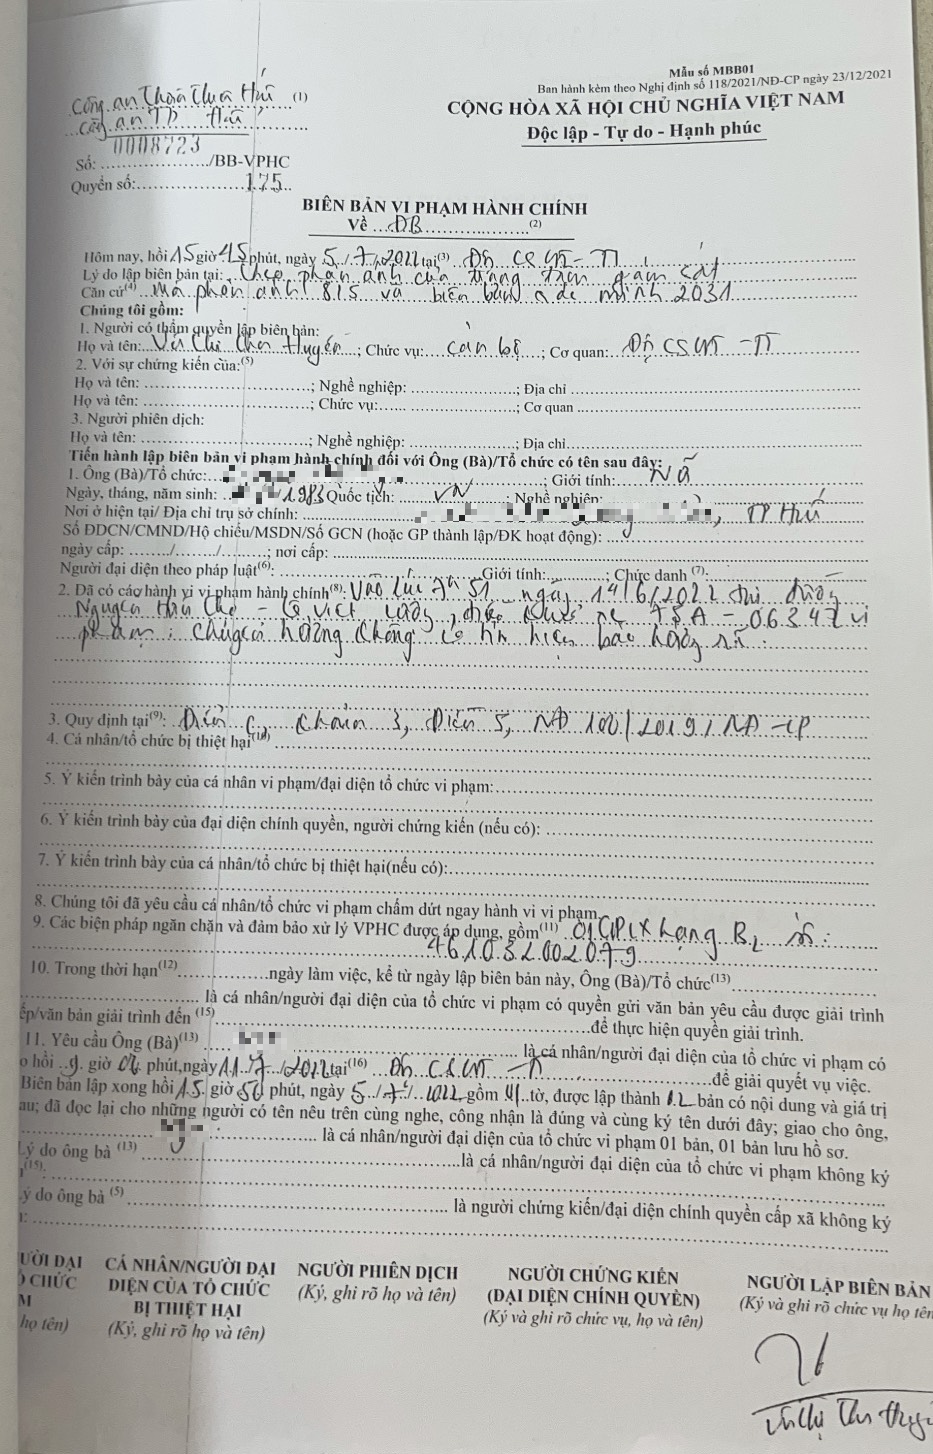 Mẫu số MBB01
Ban hành kèm theo Nghị định số 118/2021/NĐ-CP ngày 23/12/2021
Công an Thừa Thiên Huế (1)
CỘNG HÒA XÃ HỘI CHỦ NGHĨA VIỆT NAM
Công an TP Huế
Độc lập - Tự do - Hạnh phúc
0008723
Số: /BB-VPHC
Quyển số: 175
BIÊN BẢN VI PHẠM HÀNH CHÍNH
Về ĐB (2)
Hôm nay, hồi 15 giờ 45 phút, ngày 5/7/2022 tại(3) Đội CSGT - TT
Lý do lập biên bản tại: Theo phản ánh của trang giám sát
Căn cứ(4) Mã phản ánh 815 và biên bản xác minh 2031
Chúng tôi gồm:
1. Người có thẩm quyền lập biên bản:
Họ và tên: Thị Thu Huyền; Chức vụ: cán bộ; Cơ quan: Đội CSGT - TT
2. Với sự chứng kiến của:(5)
Họ và tên: ; Nghề nghiệp: ; Địa chỉ
Họ và tên: ; Chức vụ: ; Cơ quan
3. Người phiên dịch:
Họ và tên: ; Nghề nghiệp: ; Địa chỉ
Tiến hành lập biên bản vi phạm hành chính đối với Ông (Bà)/Tổ chức có tên sau đây:
1. Ông (Bà)/Tổ chức: ; Giới tính: Nữ
Ngày, tháng, năm sinh: 1983 Quốc tịch: VN; Nghề nghiệp:
Nơi ở hiện tại/ Địa chỉ trụ sở chính: , TP Huế
Số ĐDCN/CMND/Hộ chiếu/MSDN/Số GCN (hoặc GP thành lập/ĐK hoạt động):
ngày cấp: / / ; nơi cấp:
Người đại diện theo pháp luật(6): Giới tính: ; Chức danh (7):
2. Đã có các hành vi vi phạm hành chính(8): Vào lúc 7h51 ngày 14/6/2022 tại đường
Nguyễn Hữu Thọ - Lê Viết Lượng, điều khiển xe 75A-06347 vi
phạm: Chuyển hướng không có tín hiệu báo hướng rẽ.
3. Quy định tại(9): Điểm C, Khoản 3, Điều 5, NĐ 100/2019/NĐ-CP
4. Cá nhân/tổ chức bị thiệt hại(10)
5. Ý kiến trình bày của cá nhân vi phạm/đại diện tổ chức vi phạm:
6. Ý kiến trình bày của đại diện chính quyền, người chứng kiến (nếu có):
7. Ý kiến trình bày của cá nhân/tổ chức bị thiệt hại(nếu có):
8. Chúng tôi đã yêu cầu cá nhân/tổ chức vi phạm chấm dứt ngay hành vi vi phạm.
9. Các biện pháp ngăn chặn và đảm bảo xử lý VPHC được áp dụng, gồm(11) 01 GPLX hạng B2 số:
461032002079
10. Trong thời hạn(12) ngày làm việc, kể từ ngày lập biên bản này, Ông (Bà)/Tổ chức(13)
là cá nhân/người đại diện của tổ chức vi phạm có quyền gửi văn bản yêu cầu được giải trình
ếp/văn bản giải trình đến (15) để thực hiện quyền giải trình.
11. Yêu cầu Ông (Bà)(13) là cá nhân/người đại diện của tổ chức vi phạm có
o hồi 9 giờ 00 phút, ngày 11/7/2022 tại(16) Đội CSGT - TT để giải quyết vụ việc.
Biên bản lập xong hồi 15 giờ 50 phút, ngày 5/7/2022 gồm 01 tờ, được lập thành 02 bản có nội dung và giá trị
au; đã đọc lại cho những người có tên nêu trên cùng nghe, công nhận là đúng và cùng ký tên dưới đây; giao cho ông,
là cá nhân/người đại diện của tổ chức vi phạm 01 bản, 01 bản lưu hồ sơ.
Lý do ông bà (13) là cá nhân/người đại diện của tổ chức vi phạm không ký
(15):
ý do ông bà (5) là người chứng kiến/đại diện chính quyền cấp xã không ký
ƯỜI ĐẠI CÁ NHÂN/NGƯỜI ĐẠI NGƯỜI PHIÊN DỊCH NGƯỜI CHỨNG KIẾN NGƯỜI LẬP BIÊN BẢN
Ổ CHỨC DIỆN CỦA TỔ CHỨC (Ký, ghi rõ họ và tên) (ĐẠI DIỆN CHÍNH QUYỀN) (Ký và ghi rõ chức vụ, họ tên
M BỊ THIỆT HẠI (Ký và ghi rõ chức vụ, họ và tên)
họ tên) (Ký, ghi rõ họ và tên)
Thị Thu Huyền